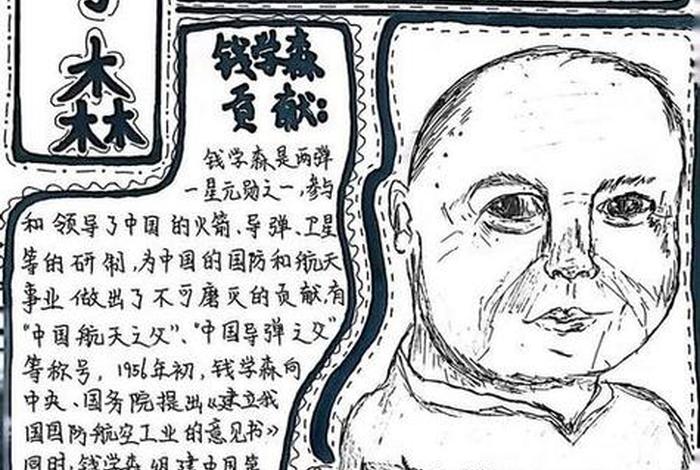 学
森
钱学森
贡献:
钱学森是两弹
一星元勋之一,参与
和领导了中国的火箭、导弹、卫星
等的研制,为中国的国防和航天
事业做出了不可磨灭的贡献,有
“中国航天之父”、“中国导弹之父”
等称号,1956年初,钱学森向
中央、国务院提出《建立我
国国防航空工业的意见书》
同时,钱学森组建中国第